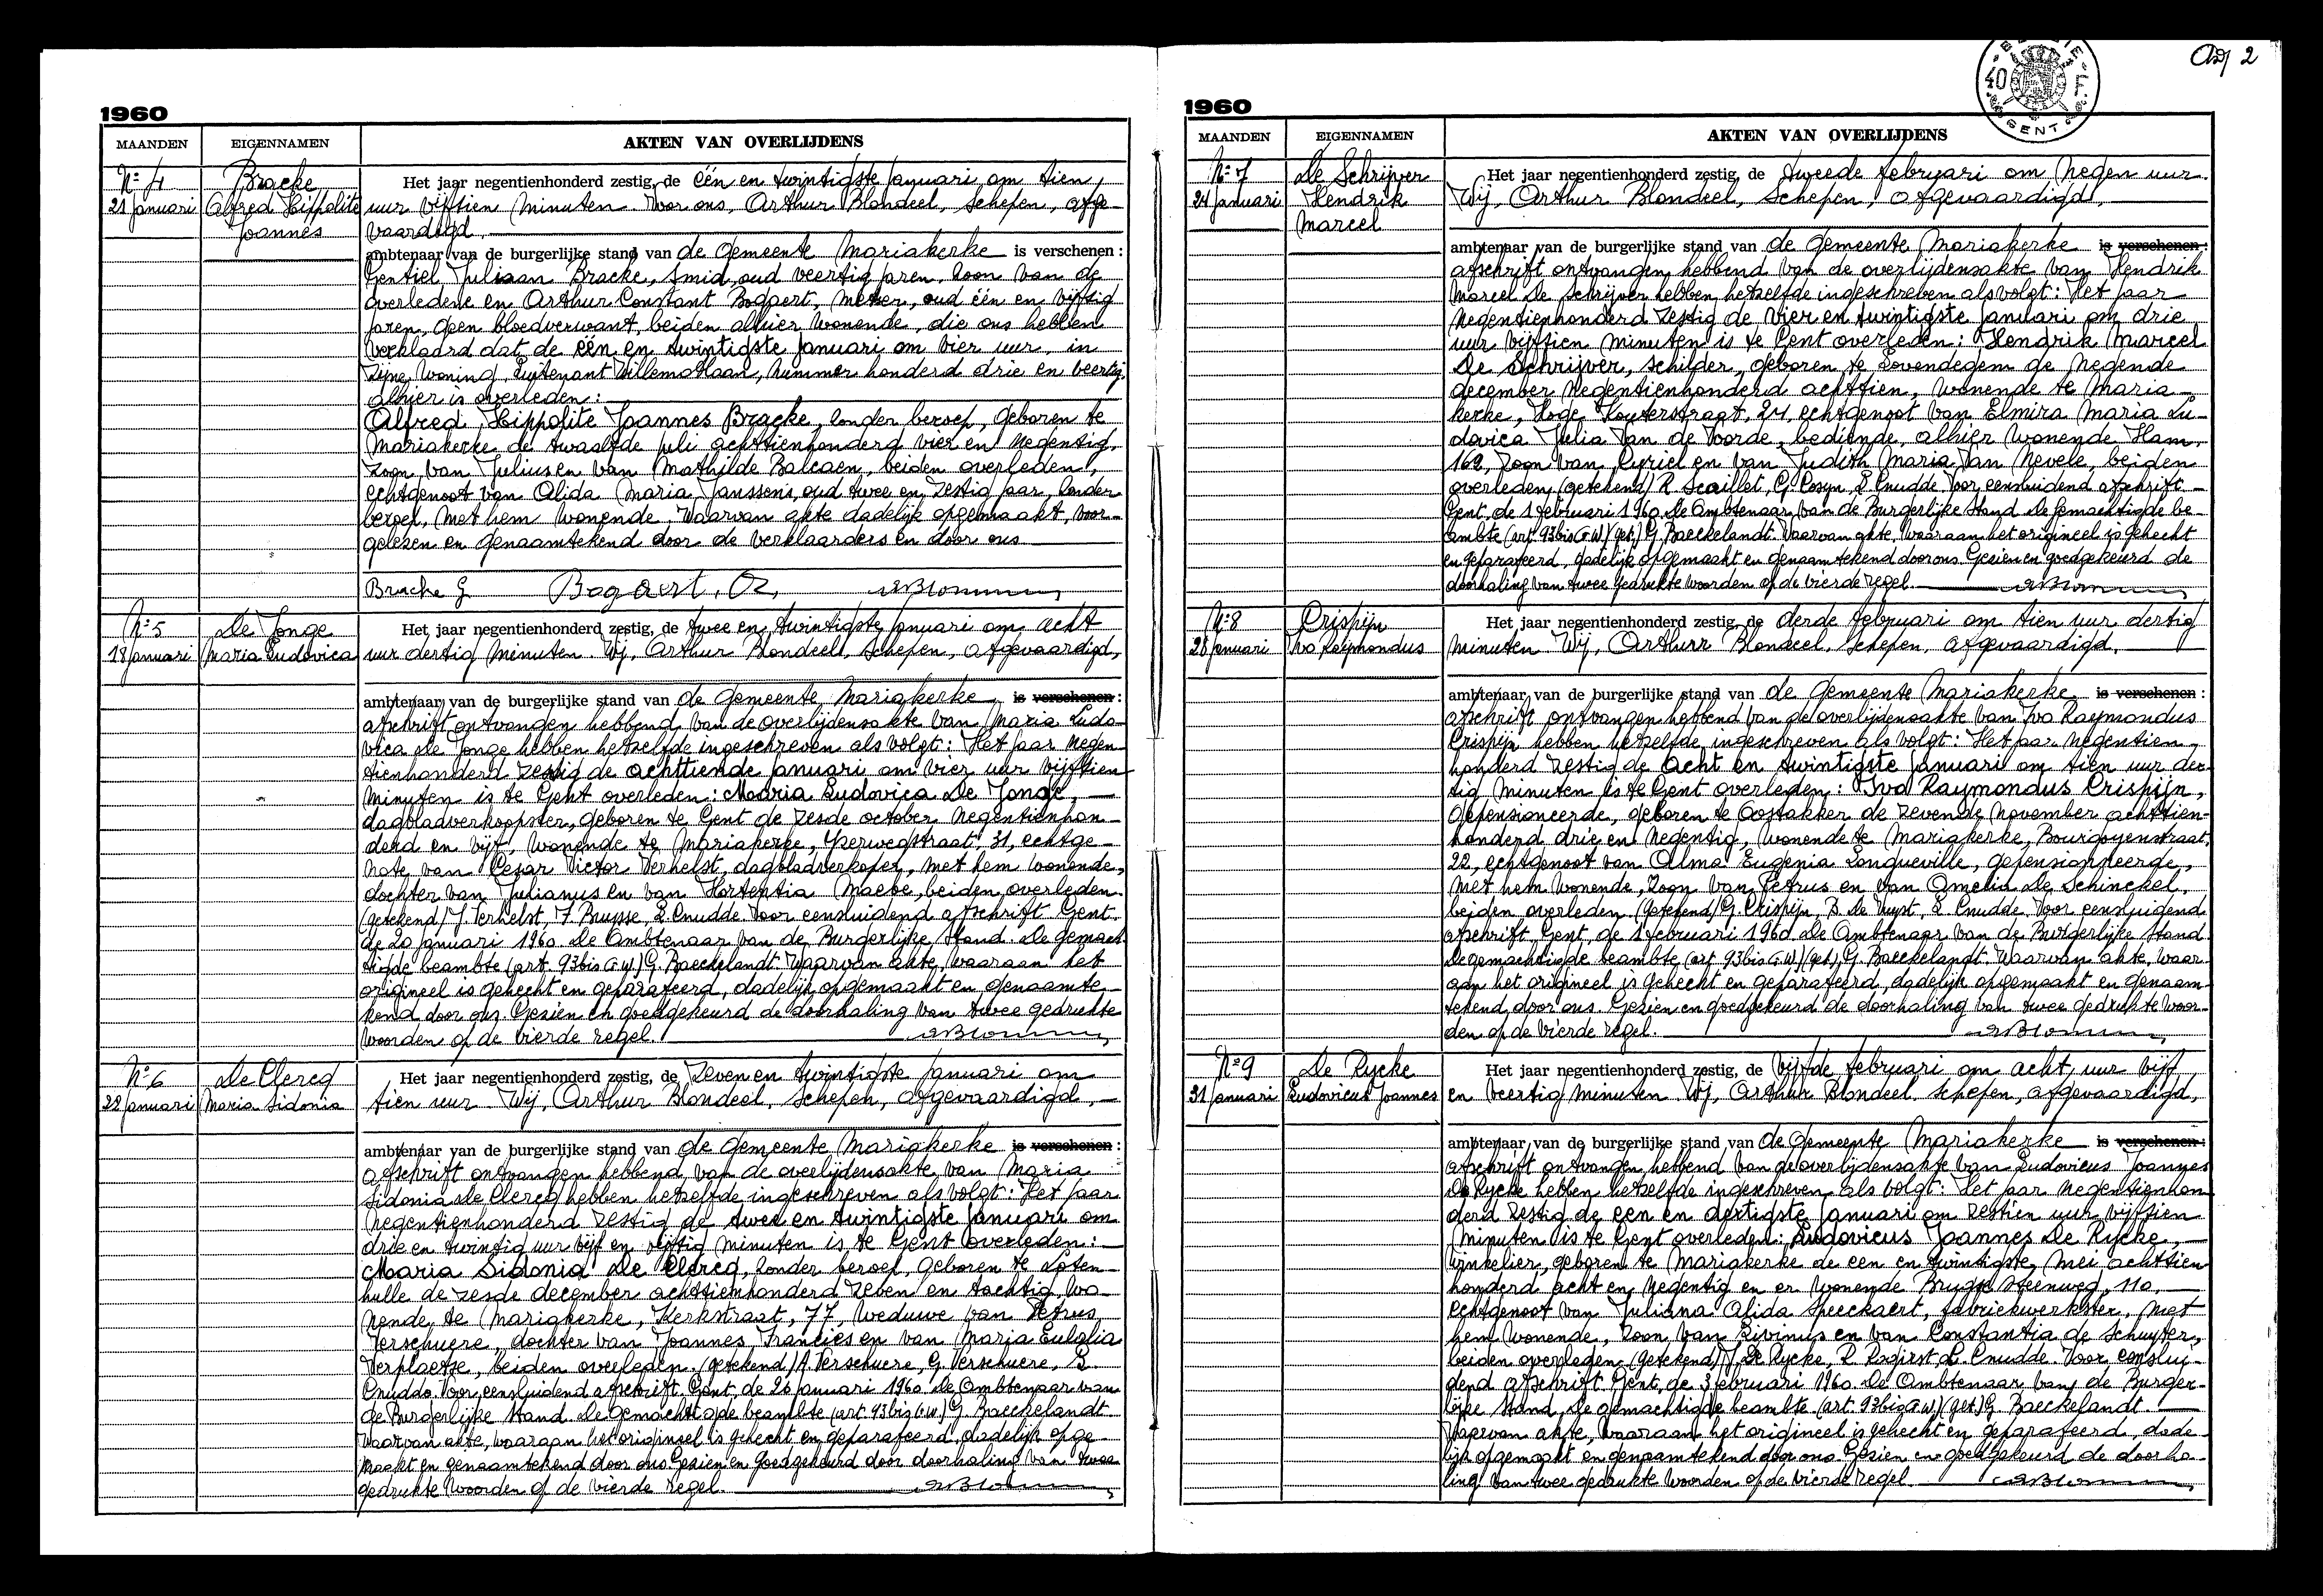 1960
MAANDEN EIGENNAMEN AKTEN VAN OVERLIJDENS
Nº 4 Bracke
21 Januari Alfred Hippolite
Joannes
Het jaar negentienhonderd zestig, de één en twintigste Januari om tien
uur vijftien minuten. Voor ons, Arthur Blondeel, Schepen, afge-
vaardigd.
ambtenaar van de burgerlijke stand van de Gemeente Mariakerke is verschenen:
Gentiel Juliaan Bracke, smid, oud veertig jaren, zoon van de
overledene en Arthur Constant Bogaert, meter, oud één en vijftig
jaren, geen bloedverwant, beiden alhier wonende, die ons hebben
verklaard dat de één en twintigste Januari om vier uur, in
zijne woning, Luitenant Willemotlaan, nummer honderd drie en veertig,
alhier is overleden:
Alfred Hippolite Joannes Bracke, zonder beroep, geboren te
Mariakerke de twaalfde juli achttienhonderd vier en negentig,
zoon van Julius en van Mathilde Balcaen, beiden overleden,
echtgenoot van Alida Maria Janssens, oud twee en zestig jaar, zonder
beroep, met hem wonende. Waarvan akte dadelijk opgemaakt, voor-
gelezen en genaamtekend door de verklaarders en door ons
Bracke G Bogaert, A.
Nº 5 De Jonge
18 Januari Maria Ludovica
Het jaar negentienhonderd zestig, de twee en twintigste Januari om acht
uur dertig minuten. Wij, Arthur Blondeel, Schepen, afgevaardigd,
ambtenaar van de burgerlijke stand van de Gemeente Mariakerke is verschenen:
afschrift ontvangen hebbend van de overlijdensakte van Maria Ludo-
vica De Jonge hebben hetzelfde ingeschreven als volgt: Het jaar negen-
tienhonderd zestig de achttiende Januari om vier uur vijftien
minuten is te Gent overleden: Maria Ludovica De Jonge,
dagbladverkoopster, geboren te Gent de zesde october negentienhon-
derd en vijf, wonende te Mariakerke, Yzerwegstraat, 31, echtge-
note van Cezar Victor Verhelst, dagbladverkoper, met hem wonende,
dochter van Julianus en van Hortentia Maebe, beiden overleden.
(getekend) J. Verhelst, J. Bruyse, L. Cnudde. Voor eensluidend afschrift Gent.
de 20 januari 1960. De Ambtenaar van de Burgerlijke Stand. De gemach-
tigde beambte (art. 93bis G.W) G. Baeckelandt. Waarvan akte, waaraan het
origineel is gehecht en geparafeerd, dadelijk opgemaakt en genaamte-
kend door ons. Gezien en goedgekeurd de doorhaling van twee gedrukte
woorden op de vierde regel.
Nº 6 De Clercq
22 Januari Maria Sidonia
Het jaar negentienhonderd zestig, de zeven en twintigste Januari om
tien uur. Wij, Arthur Blondeel, Schepen, afgevaardigd,
ambtenaar van de burgerlijke stand van de Gemeente Mariakerke is verschenen:
afschrift ontvangen hebbend van de overlijdensakte van Maria
Sidonia De Clercq hebben hetzelfde ingeschreven als volgt: Het jaar
negentienhonderd zestig de twee en twintigste Januari om
drie en twintig uur vijf en vijftig minuten is te Gent overleden:
Maria Sidonia De Clercq, zonder beroep, geboren te Loten-
hulle de zesde december achttienhonderd zeven en tachtig, wo-
nende te Mariakerke, Kerkstraat, 77, weduwe van Petrus
Verschuere, dochter van Joannes Francies en van Maria Eulalia
Verplaetse, beiden overleden. (getekend) A. Verschuere, G. Verschuere, L.
Cnudde. Voor eensluidend afschrift. Gent, de 26 januari 1960. De Ambtenaar van
de Burgerlijke Stand. De gemachtigde beambte (art. 93bis G.W.) G. Baeckelandt
Waarvan akte, waaraan het origineel is gehecht en geparafeerd, dadelijk opge-
maakt en genaamtekend door ons. Gezien en goedgekeurd door doorhaling van twee
gedrukte woorden op de vierde regel.
2
BELGIE
40 F.
GENT
1960
MAANDEN EIGENNAMEN AKTEN VAN OVERLIJDENS
Nº 7 De Schrijver
24 Januari Hendrik
Marcel
Het jaar negentienhonderd zestig, de tweede februari om negen uur.
Wij, Arthur Blondeel, Schepen, afgevaardigd,
ambtenaar van de burgerlijke stand van de Gemeente Mariakerke is verschenen:
afschrift ontvangen hebbend van de overlijdensakte van Hendrik
Marcel De Schrijver hebben hetzelfde ingeschreven als volgt: Het jaar
negentienhonderd zestig de vier en twintigste Januari om drie
uur vijftien minuten is te Gent overleden: Hendrik Marcel
De Schrijver, schilder, geboren te Lovendegem de negende
december negentienhonderd achttien, wonende te Maria-
kerke, Hoge Kouterstraat, 24, echtgenoot van Elmira Maria Lu-
dovica Julia Van de Voorde, bediende, alhier wonende Ham,
162, zoon van Cyriel en van Judith Maria Van Nevele, beiden
overleden (getekend) R. Scaillet, G. Cosyn, L. Cnudde. Voor eensluidend afschrift-
Gent, de 1 februari 1960. de Ambtenaar van de Burgerlijke Stand. De gemachtigde be-
ambte (art. 93bis G.W) (get.) G. Baeckelandt. Waarvan akte, waaraan het origineel is gehecht
en geparafeerd, dadelijk opgemaakt en genaamtekend door ons. Gezien en goedgekeurd de
doorhaling van twee gedrukte woorden op de vierde regel.
Nº 8 Crispijn
28 Januari Ivo Raymondus
Het jaar negentienhonderd zestig, de derde februari om tien uur dertig
minuten. Wij, Arthurr Blondeel, Schepen, afgevaardigd,
ambtenaar van de burgerlijke stand van de Gemeente Mariakerke is verschenen:
afschrift ontvangen hebbend van de overlijdensakte van Ivo Raymondus
Crispijn hebben hetzelfde ingeschreven als volgt: Het jaar negentien-
honderd zestig de acht en twintigste Januari om tien uur der-
tig minuten is te Gent overleden: Ivo Raymondus Crispijn,
gepensioneerde, geboren te Oostakker de zevende november achttien-
honderd drie en negentig, wonende te Mariakerke, Bourgoyenstraat,
22, echtgenoot van Alma Eugenia Longueville, gepensionneerde,
met hem wonende, zoon van Petrus en van Amelia De Schinckel,
beiden overleden (getekend) G. Crispijn, B. De Vuyst, L. Cnudde. Voor eensluidend
afschrift, Gent, de 1 februari 1960. De Ambtenaar van de Burgerlijke Stand.
De gemachtigde beambte (art. 93bis G.W) (get.) G. Baeckelandt. Waarvan akte, waar-
aan het origineel is gehecht en geparafeerd, dadelijk opgemaakt en genaam-
tekend door ons. Gezien en goedgekeurd de doorhaling van twee gedrukte woor-
den op de vierde regel.
Nº 9 De Rycke
31 Januari Ludovicus Joannes
Het jaar negentienhonderd zestig, de vijfde februari om acht uur vijf
en veertig minuten. Wij, Arthur Blondeel, Schepen, afgevaardigd,
ambtenaar van de burgerlijke stand van de Gemeente Mariakerke is verschenen:
afschrift ontvangen hebbend van de overlijdensakte van Ludovicus Joannes
De Rycke hebben hetzelfde ingeschreven als volgt: Het jaar negentienhon-
derd zestig de een en dertigste Januari om zestien uur vijftien
minuten is te Gent overleden: Ludovicus Joannes De Rycke,
winkelier, geboren te Mariakerke de een en twintigste mei achttien-
honderd acht en negentig en er wonende Brugse steenweg, 110,
echtgenoot van Juliana Alida Speeckaert, fabriekwerkster, met
hem wonende, zoon van Livinus en van Constantia de Schuyter,
beiden overleden (getekend) J. De Rycke, L. Cnudde. Voor eenslui-
dend afschrift. Gent, de 3 februari 1960. De Ambtenaar van de Burger-
lijke Stand. De gemachtigde beambte (art. 93bis G.W.) (get.) G. Baeckelandt.
Waarvan akte, waaraan het origineel is gehecht en geparafeerd, dade-
lijk opgemaakt en genaamtekend door ons. Gezien en goedgekeurd de doorha-
ling van twee gedrukte woorden op de vierde regel.